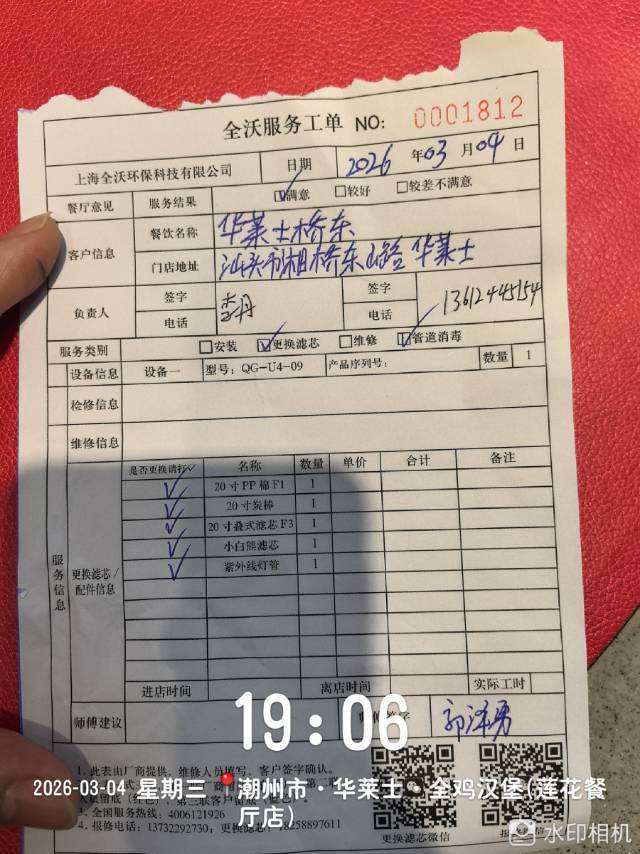 全沃服务工单 NO: 0001812
上海全沃环保科技有限公司 日期 2026 年 03 月 04 日
餐厅意见 服务结果 ☑满意 □较好 □较差不满意
客户信息 餐饮名称 华莱士桥东
门店地址 汕头市湘桥东山路华莱士
负责人 签字 李丹 签字
电话 电话 13612445154
服务类别 □安装 ☑更换滤芯 □维修 ☑管道消毒
设备信息 设备一 型号: QG-U4-09 产品序列号: 数量 1
检修信息
维修信息
服务信息
更换滤芯/配件信息
是否更换请打✓ 名称 数量 单价 合计 备注
✓ 20寸PP棉F1 1
✓ 20寸炭棒 1
✓ 20寸叠式滤芯F3 1
✓ 小白熊滤芯 1
✓ 紫外线灯管 1
进店时间 离店时间 实际工时
师傅建议 签字 郭泽勇
19:06
1. 此表由厂商提供, 维修人员填写, 客户签字确认。
3. 全国服务热线: 4006121926
4. 报修电话: 13732292730, 更换滤芯: 8258897611
更换滤芯微信
2026-03-04 星期三 潮州市·华莱士·全鸡汉堡(莲花餐厅店)
水印相机